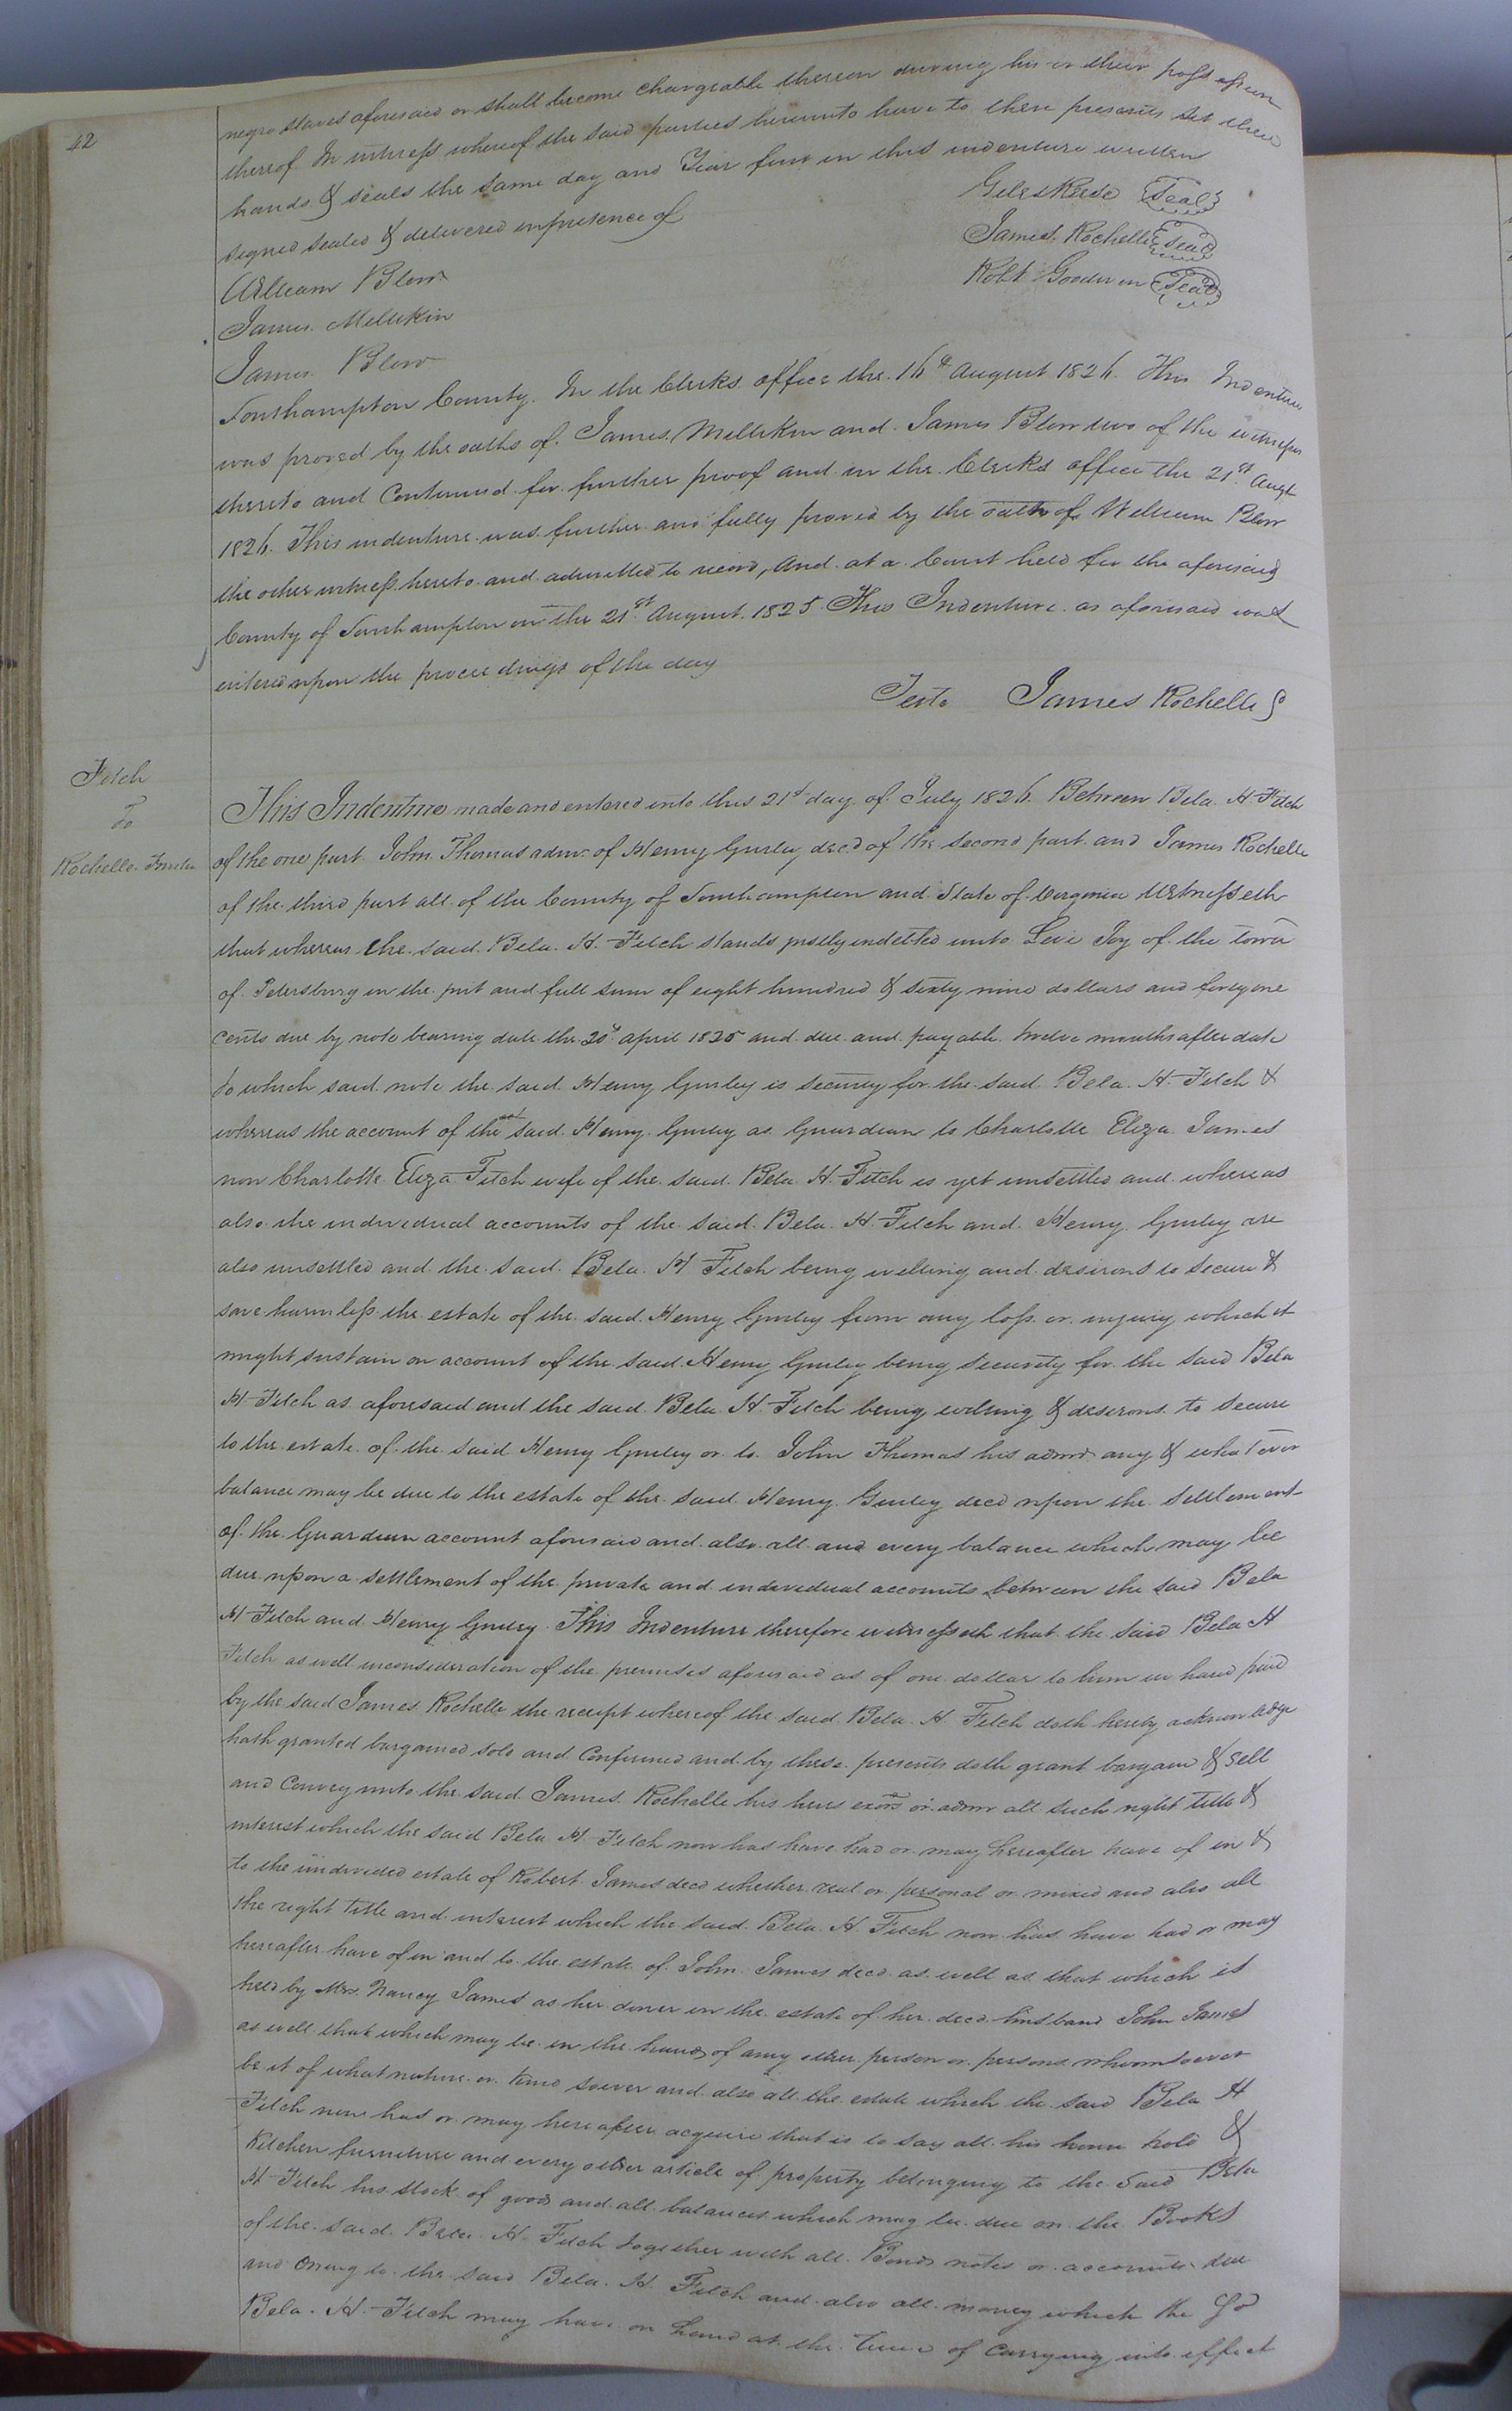 42
negro slaves aforesaid or shall become chargeable thereon during his or their possession
thereof. In witness whereof the said parties hereunto have to these presents set their
hands & seals the same day and Year first in this indenture written
signed sealed & delivered in presence of
Giles Reese Seal
James Rochelle Seal
Robt Goodwin Seal
William Blow
James Millikin
James Blow
Southampton County. In the Clerks office the 16th August 1826. This Indenture
was proved by the oaths of James Millikin and James Blow two of the witnesses
thereto and Continued for further proof and in the Clerks office the 21st Augt
1826. This indenture was further and fully proved by the oath of William Blow
the other witness hereto and admitted to record, And at a Court held for the aforesaid
County of Southampton on the 21st August 1825 This Indenture as aforesaid was
entered upon the proceedings of the day
Teste James Rochelle
Fitch
To
Rochelle Trustee
This Indenture made and entered into this 21st day of July 1826. Between Bela H Fitch
of the one part John Thomas admr of Henry Gurley decd of the second part and James Rochelle
of the third part all of the County of Southampton and State of Virginia Witnesseth
that whereas the said Bela H. Fitch stands justly indetted unto Levi Joy of the town
of Petersburg in the just and full sum of eight hundred & sixty nine dollars and forty one
cents due by note bearing date the 20th april 1825 and due and payable twelve months after date
to which said note the said Henry Gurley is security for the said Bela H. Fitch &
whereas the account of the said Henry Gurley as Guardian to Charlotte Eliza James
now Charlotte Eliza Fitch wife of the said Bela H. Fitch is yet unsettled and whereas
also the individual accounts of the said Bela H. Fitch and Henry Gurley are
also unsettled and the said Bela H Fitch being willing and desirous to secure &
save harmless the estate of the said Henry Gurley from any loss or injury which it
might sustain on account of the said Henry Gurley being security for the said Bela
H Fitch as aforesaid and the said Bela H. Fitch being willing & desirous to secure
to the estate of the said Henry Gurley or to John Thomas his admr any & whatever
balance may be due to the estate of the said Henry Gurley decd upon the settlement
of the Guardian account aforesaid and also all and every balance which may be
due upon a settlement of the private and individual accounts between the said Bela
H Fitch and Henry Gurley. This Indenture therefore witnesseth that the said Bela H
Fitch as well in consideration of the premises aforesaid as of one dollar to him in hand paid
by the said James Rochelle the receipt whereof the said Bela H Fitch doth hereby acknowledge
hath granted bargained sold and Confirmed and by these presents doth grant bargain & sell
and Convey unto the said James Rochelle his heirs exors or admr all such right title &
interest which the said Bela H. Fitch now has have had or may hereafter have of in &
to the undivided estate of Robert James decd whether real or personal or mixed and also all
the right title and interest which the said Bela H. Fitch now has have had or may
hereafter have of in and to the estate of John James decd as well as that which is
held by Mrs. Nancy James as her dower in the estate of her decd husband John James
as well that which may be in the hands of any other person or persons whomsoever
be it of what nature or kind soever and also all the estate which the said Bela H
Fitch now has or may hereafter acquire that is to say all his house hold &
Kitchen furniture and every other article of property belonging to the said Bela
H. Fitch his stock of goods and all balances which may be due on the Books
of the said Bela H. Fitch together with all Bonds notes or accounts due
and owing to the said Bela H. Fitch and also all money which the sd
Bela H. Fitch may have on hand at the time of carrying into effect